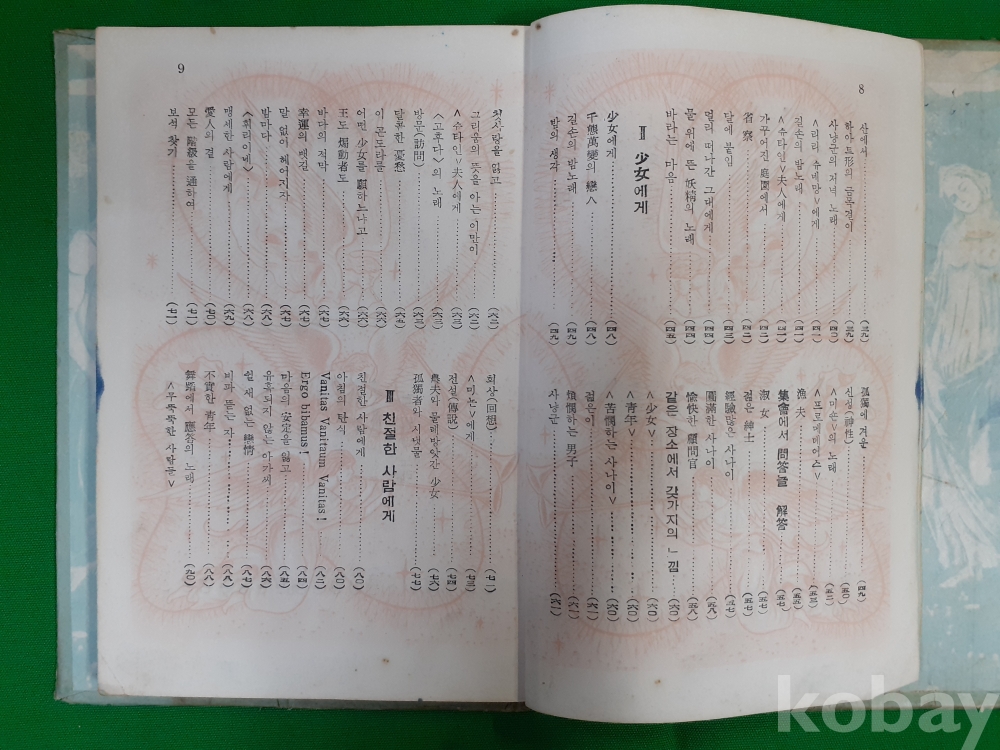 8
산에서 (三九)
하아트形의 금목걸이 (三九)
사냥군의 저녁 노래 (四〇)
<리리 슈네망>에게 (四一)
길손의 밤노래 (四一)
<슈타인>夫人에게 (四二)
가꾸어진 庭園에서 (四二)
省察 (四二)
달에 붙임 (四三)
멀리 떠나간 그대에게 (四四)
물 위에 뜬 妖精의 노래 (四四)
바라는 마음 (四五)
Ⅱ 少女에게
少女에게 (四八)
千態萬變의 戀人 (四八)
길손의 밤노래 (四九)
밤의 생각 (四九)
孤獨에 겨운 (四九)
신성(神性) (五〇)
<미뇬>의 노래 (五二)
<프로메테어스> (五三)
漁夫 (五五)
集會에서 問答들 解答
淑女 (五七)
젊은 紳士 (五七)
經驗많은 사나이 (五七)
圓滿한 사나이 (五八)
愉快한 顧問官 (五八)
같은 장소에서 갖가지의 느낌 (六〇)
<少女> (六〇)
<靑年> (六〇)
<苦憫하는 사나이> (六〇)
젊은이 (六一)
煩憫하는 男子 (六一)
사냥군 (六一)
9
첫사랑을 잃고 (六二)
그리움의 뜻을 아는 이만이 (六二)
<슈타인>夫人에게 (六三)
<고후다>의 노래 (六三)
방문(訪問) (六三)
달콤한 憂愁 (六七)
이 곤도라를 (六六)
어떤 少女를 願하느냐고 (六六)
王도 煽動者도 (六六)
바다의 적막 (六七)
幸運의 뱃길 (六七)
말 없이 헤어지자 (六八)
밤마다 (六八)
<휘리이네> (六八)
맹세한 사람에게 (六九)
愛人의 곁 (七〇)
모든 階級을 通하여 (七一)
보석 찾기 (七一)
회상(回想) (七一)
<미뇬>에게 (七三)
전설(傳說) (七四)
農夫와 물레방앗간 少女 (七六)
孤獨者와 시냇물 (七七)
Ⅲ 친절한 사람에게
친절한 사람에게 (八〇)
아침의 탄식 (八〇)
Vanitas Vanitaum Vanitas! (八二)
Ergo bibamus! (八四)
마음의 安定을 잃고 (八五)
유혹되지 않는 아가씨 (八六)
쉴 새 없는 戀情 (八七)
비파 뜯는 자 (八八)
不實한 靑年 (八八)
舞蹈에서 應答의 노래 (九〇)
<무뚝뚝한 사람들>
kobay